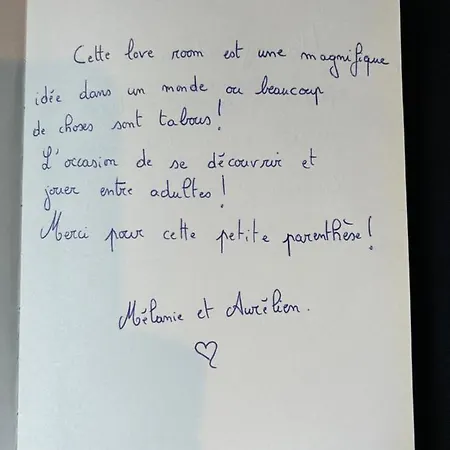 Cette love room est une magnifique
idée dans un monde ou beaucoup
de choses sont tabous !
L'occasion de se découvrir et
jouer entre adultes !
Merci pour cette petite parenthèse !
Mélanie et Aurélien.